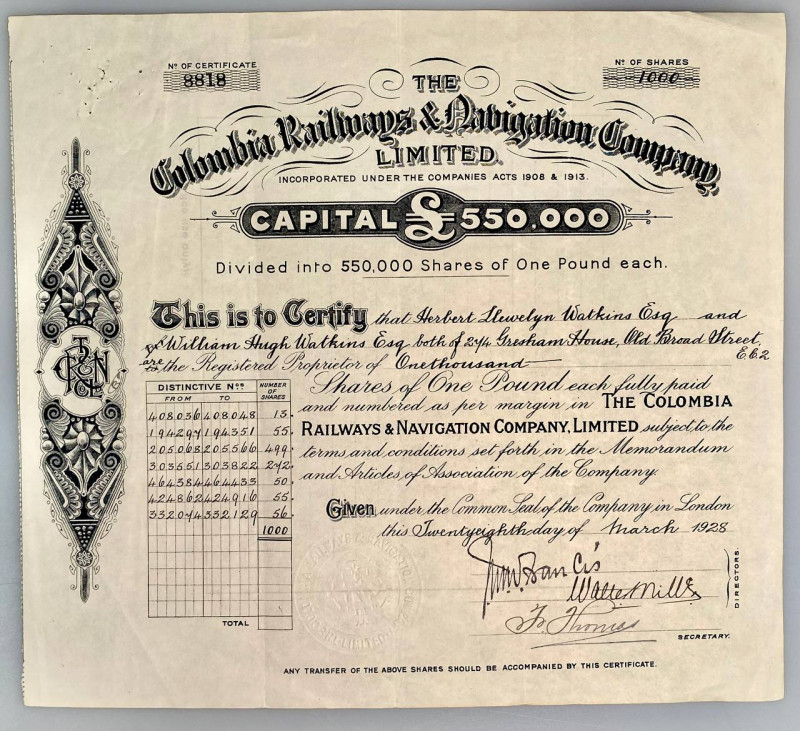 Nº OF CERTIFICATE
8818
Nº OF SHARES
1000
THE
Colombia Railways & Navigation Company,
LIMITED.
INCORPORATED UNDER THE COMPANIES ACTS 1908 & 1913.
CAPITAL £550,000
Divided into 550,000 Shares of One Pound each.
This is to Certify that Herbert Llewelyn Watkins Esq and
William Hugh Watkins Esq both of 274 Gresham House, Old Broad Street,
E.C.2
are the Registered Proprietor of Onethousand
Shares of One Pound each fully paid
and numbered as per margin in THE COLOMBIA
RAILWAYS & NAVIGATION COMPANY, LIMITED subject to the
terms and conditions set forth in the Memorandum
and Articles of Association of the Company.
Given under the Common Seal of the Company in London
this Twentyeighth day of March 1928
DISTINCTIVE Nºs
NUMBER OF SHARES
FROM TO
408036 408048 13
194297 194351 55
205068 205566 499
303551 303822 272
464384 464433 50
424862 424916 55
332074 332129 56
1000
TOTAL
Walter Mills
DIRECTORS.
Thomas
SECRETARY.
ANY TRANSFER OF THE ABOVE SHARES SHOULD BE ACCOMPANIED BY THIS CERTIFICATE.